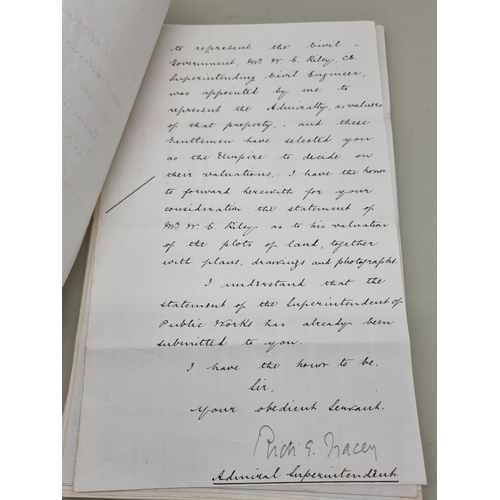 to represent the Civil –
Government, Mr. W. E. Riley, CE.
Superintending Civil Engineer,
was appointed by me to
represent the Admiralty, as valuers
of that property, and these
Gentlemen have selected you
as the Umpire to decide on
their valuations, I have the honor
to forward herewith for your
consideration the statement of
Mr. W. E. Riley as to his valuation
of the plots of land, together
with plans, drawings and photographs.
I understand that the
statement of the Superintendent of
Public Works has already been
submitted to you.
I have the honor to be,
Sir,
Your obedient Servant.
Rich E. Tracey
Admiral Superintendent.